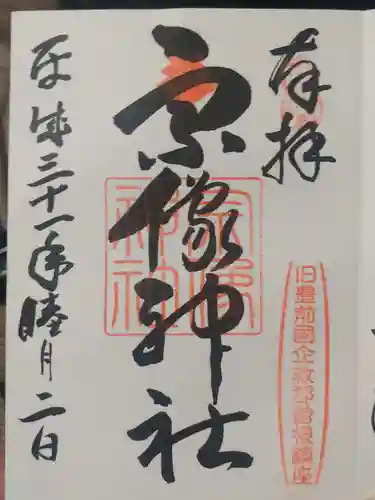 奉拝
宗像神社
宗像神社
旧豊前國企救郡曽根鎮座
平成三十一年睦月二日